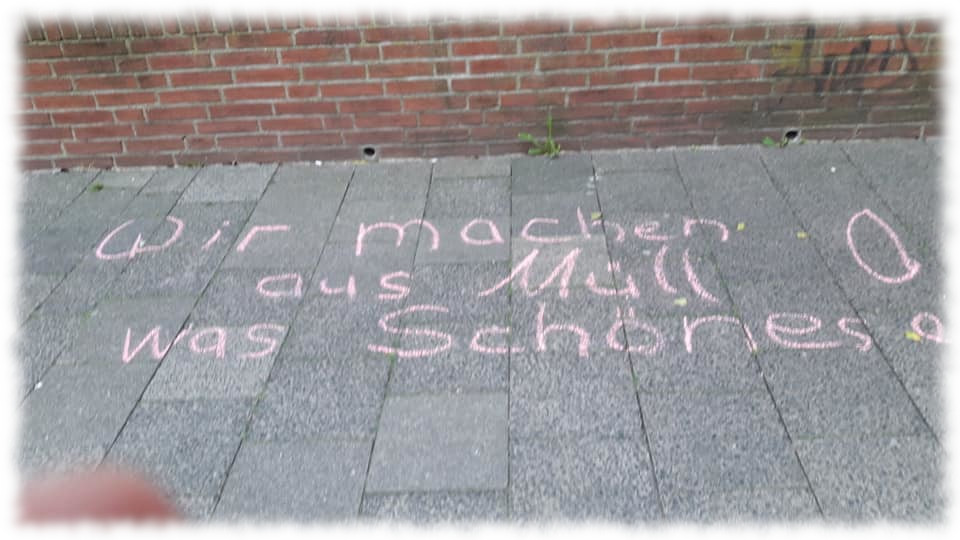 Wir machen
aus Müll
was Schönes!